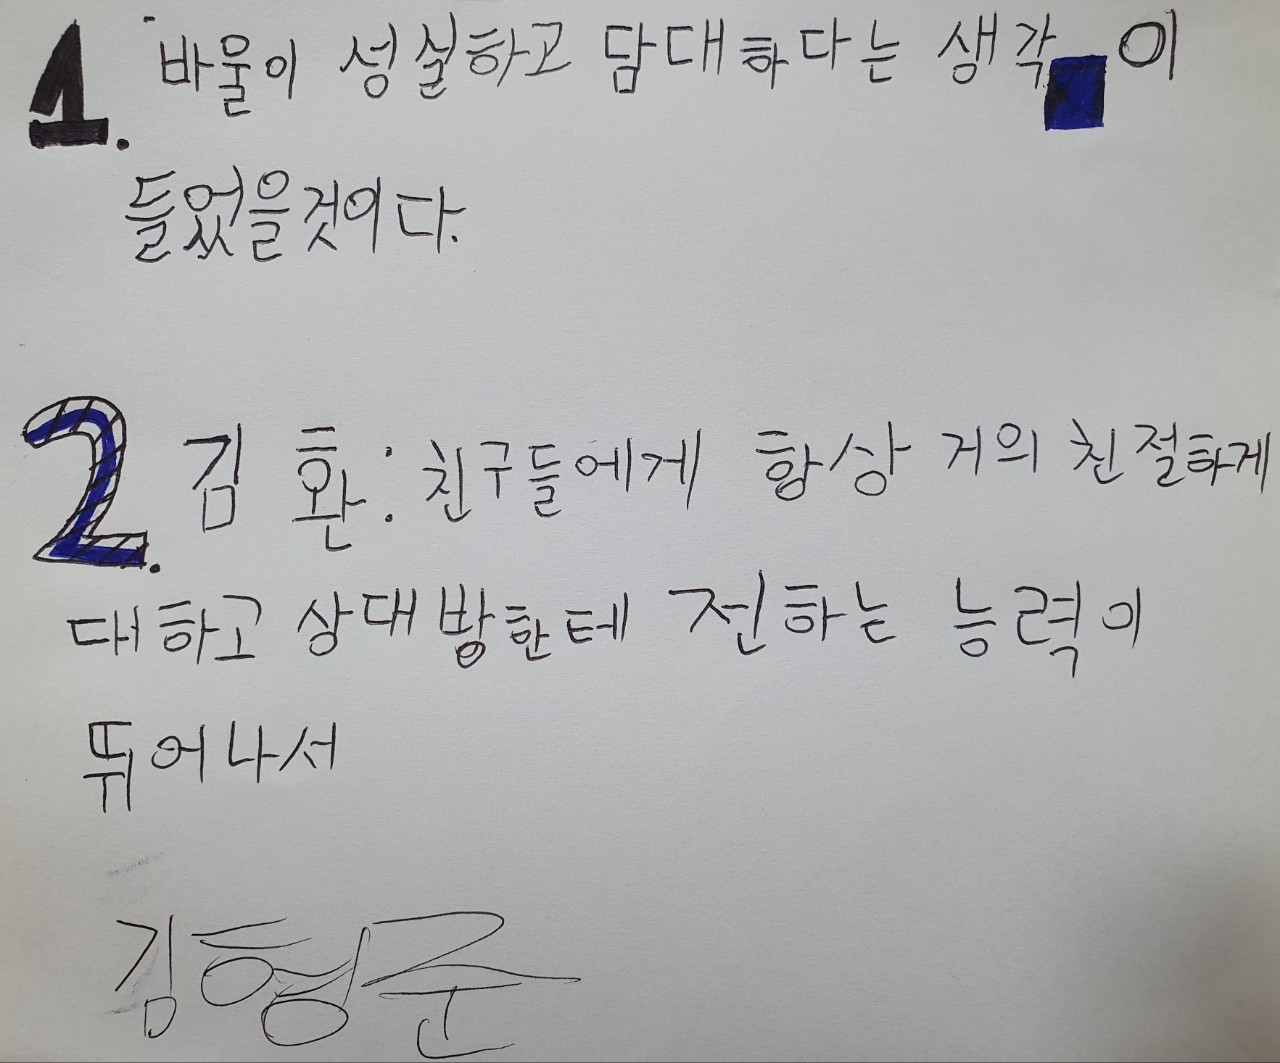 1. 바울이 성실하고 담대하다는 생각이
들었을것이다.
2. 김환: 친구들에게 항상 거의 친절하게
대하고 상대방한테 전하는 능력이
뛰어나서
김형준